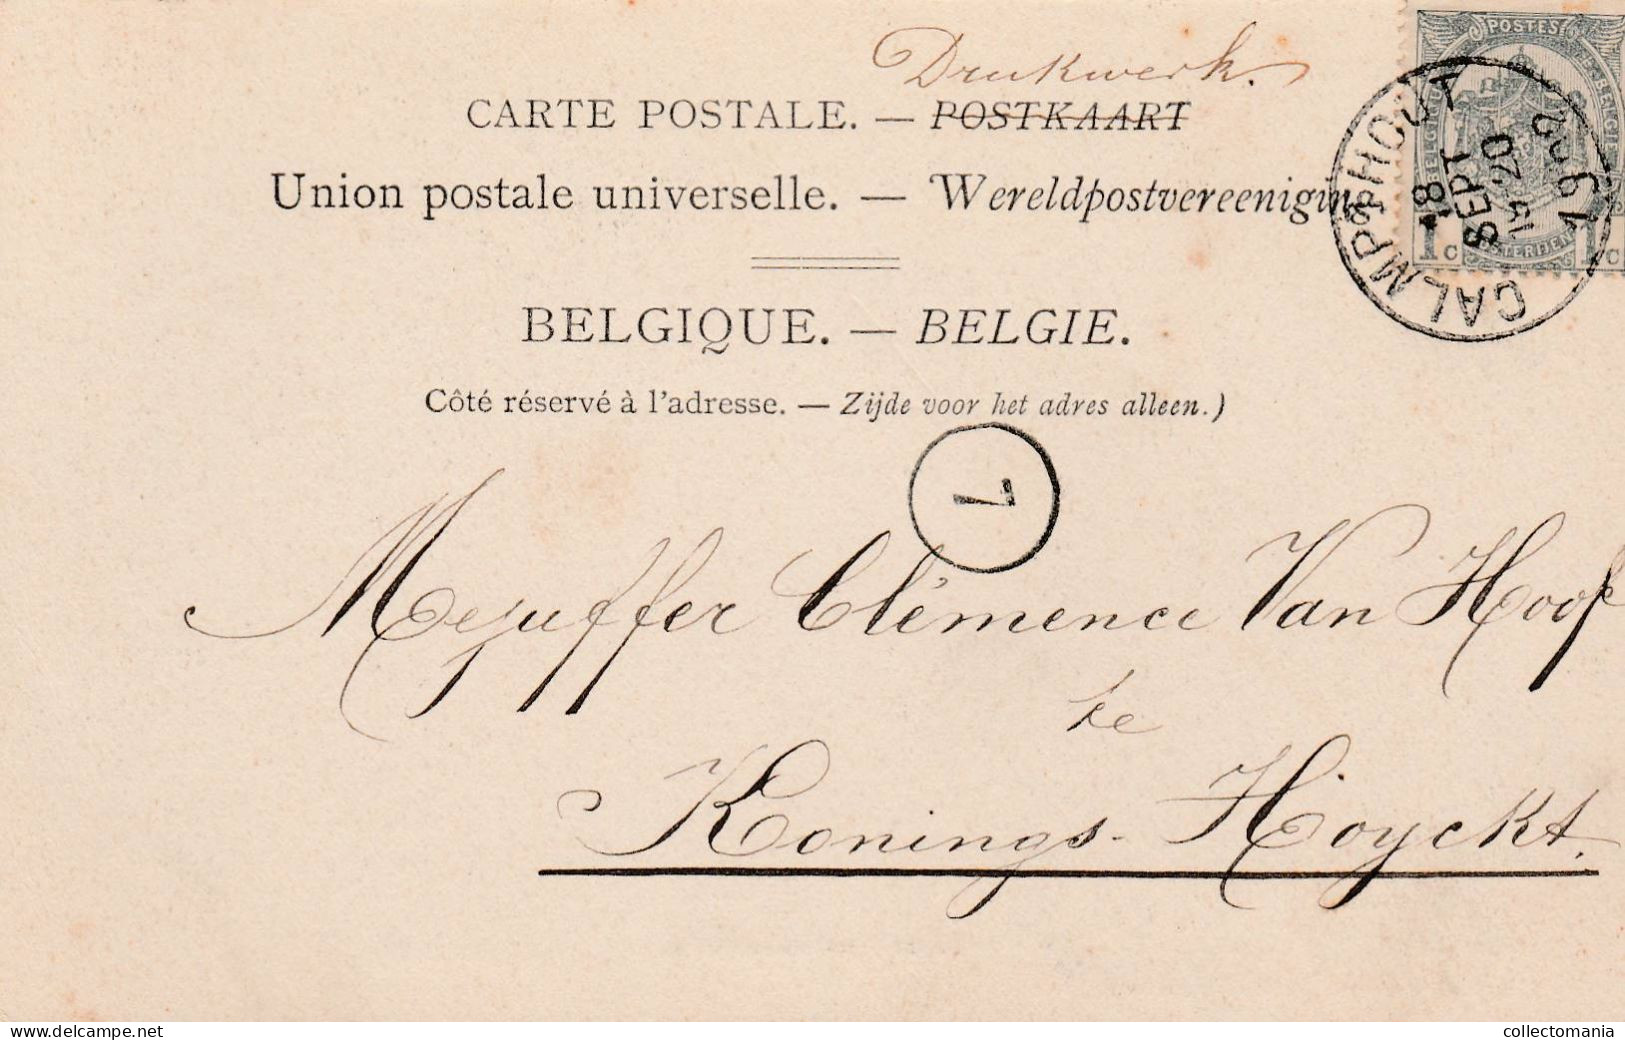 Drukwerk.
CARTE POSTALE. — POSTKAART
Union postale universelle. — Wereldpostvereeniging
BELGIQUE. — BELGIE.
Côté réservé à l'adresse. — Zijde voor het adres alleen.)
POSTES
1 c 1 c
CALMPTHOUT
18 SEPT 1900
7
Mejuffer Clémence Van Hoof
te
Konings-Hoyckt.
https://www.delcampe.net
collectomania